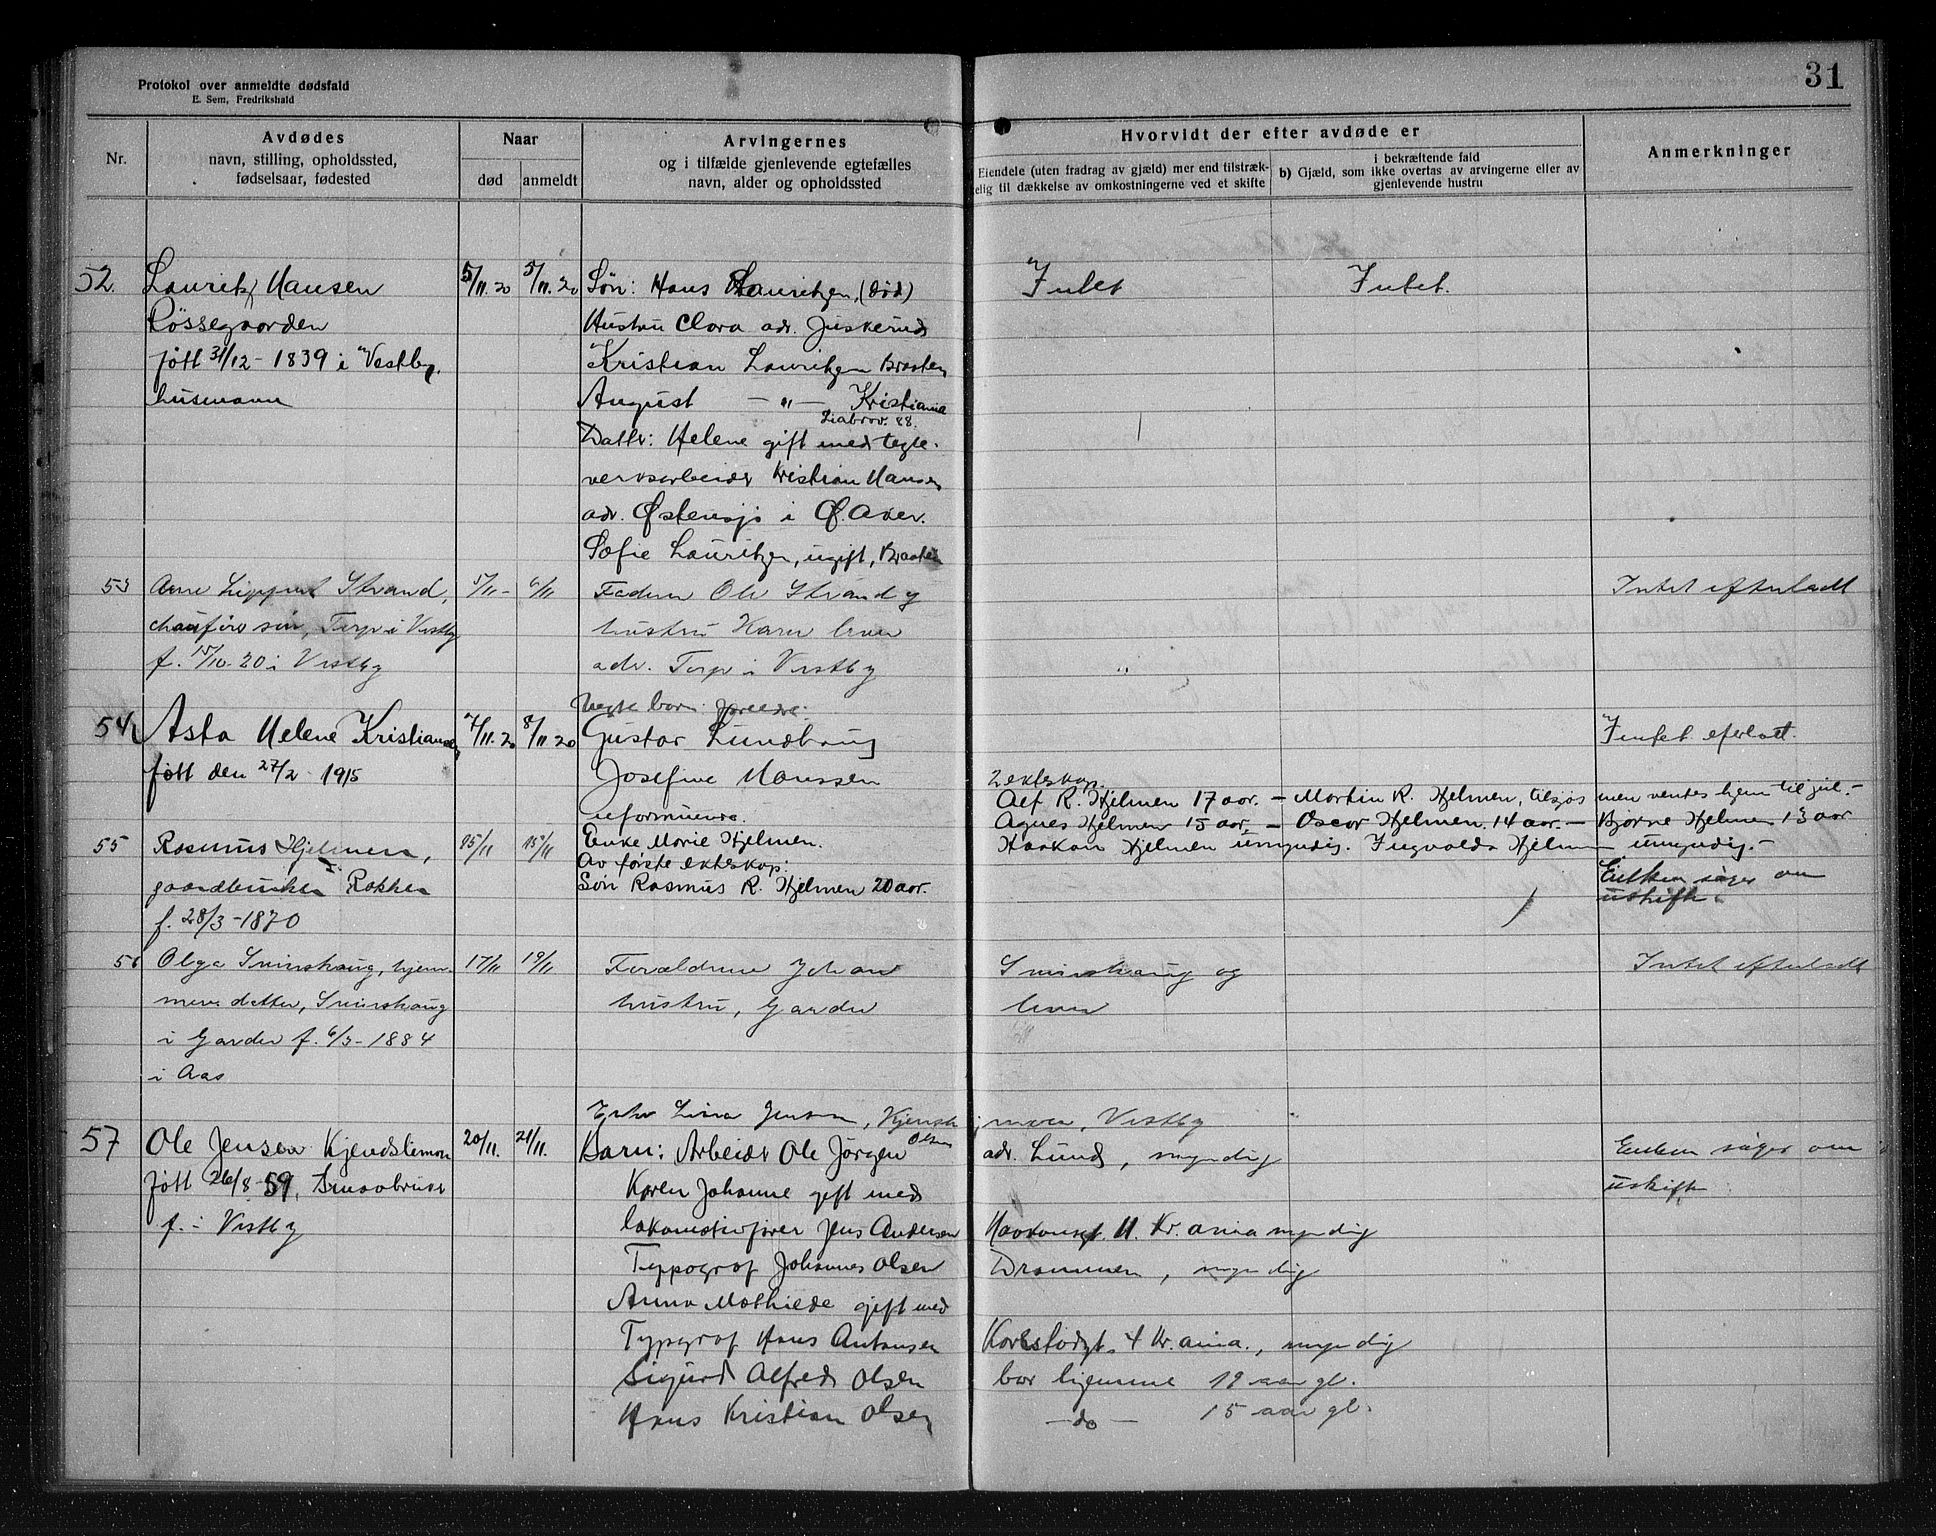 Protokol over anmeldte dødsfald
E. Sem, Fredrikshald
31
Nr.
Avdødes
navn, stilling, opholdssted,
fødselsaar, fødested
Naar
død
anmeldt
Arvingernes
og i tilfælde gjenlevende egtefælles
navn, alder og opholdssted
Hvorvidt der efter avdøde er
Eiendele (uten fradrag av gjæld) mer end tilstræk-
elig til dækkelse av omkostningerne ved et skifte
i bekræftende fald
b) Gjæld, som ikke overtas av arvingerne eller av
gjenlevende hustru
Anmerkninger
52. Lauritz Hansen 5/11.20 5/11.20 Søn: Hans Lauritzen, (død) Intet Intet.
Røssegaarden Hustru Clara adr. Juskerud
født 31/12-1839 i Vestby. Kristian Lauritzen Braaten
husmann August — " — Kristiania
Liabrov. 88.
Datter: Helene gift med tegl-
verksarbeider Kristian Hansen
adr. Østensjø i Ø. Aker.
Sofie Lauritzen, ugift, Braaten
53 Arne Strand, 5/11- 6/11 Faderen Ole Strand og Intet efterladt
chauførs søn, Torp i Vestby hustru Karen lever
f. 15/10-20 i Vestby adr. Torp i Vestby
54 Asta Helene Kristiansen 7/11.20 8/11.20 Gustav Lundhaug Intet efterlatt.
født den 27/2 1915 Josefine Hanssen
2 ekteskap.
Alf R. Hjelmen 17 aar. — Martin R. Hjelmen, tilsjøs men ventes hjem til jul.-
Agnes Hjelmen 15 aar, — Oscar Hjelmen 14 aar. — Bjørne Hjelmen 13 aar
55 Rasmus Hjelmen, 15/11 15/11 Enke Marie Hjelmen. Haakon Hjelmen umyndig. Ingvalda Hjelmen umyndig.-
Av første ekteskap:
gaardbruker Rokken Søn Rasmus R. Hjelmen 20 aar. Enken søger om
uskifte.
f. 28/3-1870
56 Olga Sninshaug, hjem- 17/11 19/11 Forældrene Johan Sninshaug og Intet efterladt
meve. datter, Sninshaug hustru, Garder lever
i Garder f. 6/3-1884
i Aas
Enke Lina Jensen, Vestby
57 Ole Jensen 20/11. 21/11. Barn: Arbeider Ole Jørgen Olsen adr. Lund, myndig Enken søger om
født 26/8-59, Smaabruker Karen Johanne gift med uskifte
f. i Vestby lokomotivfører Jens Andersen Haakonsgt. 11. Kr.ania myndig
Typograf Johannes Olsen Drammen, myndig
Anna Mathilde gift med
Typograf Hans Antonsen 4 Kr.ania., myndig
Sigurd Alfred Olsen bor hjemme 19 aar gl.
Hans Kristian Olsen — do — 15 aar gl.